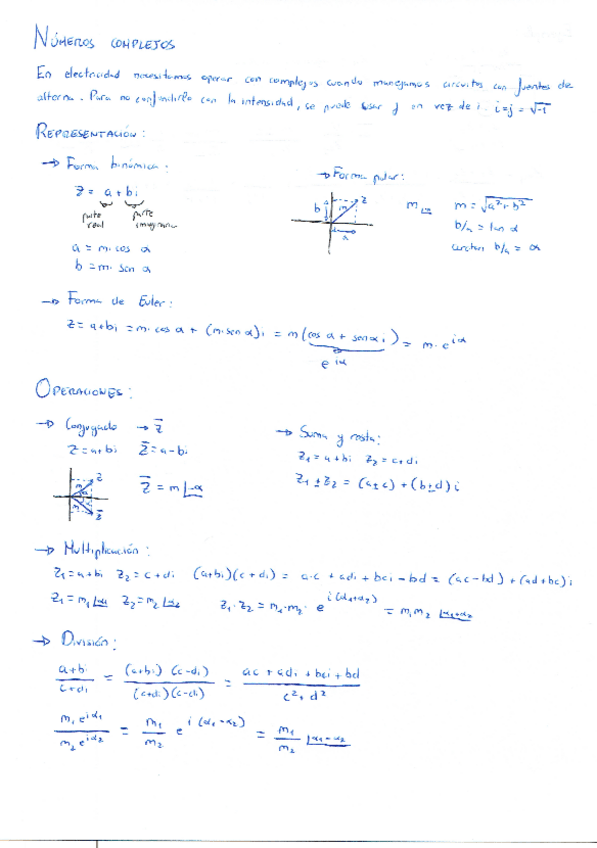 NÚMEROS COMPLEJOS
En electricidad necesitamos operar con complejos cuando manejamos circuitos con fuentes de
alterna. Para no confundirlo con la intensidad, se puede usar j en vez de i. i=j = √-1
REPRESENTACIÓN:
→ Forma binómica:
z = a + bi
parte real
parte imaginaria
a = m·cos α
b = m·sen α
→ Forma polar:
b m z
a
m∠α
m = √a²+b²
b/a = tan α
arctan b/a = α
→ Forma de Euler:
z = a+bi = m·cos α + (m·sen α)i = m(cos α + sen α i) = m·e^iα
e^iα
OPERACIONES:
→ Conjugado → z̅
z = a+bi z̅ = a-bi
z
m
m
z̅
z̅ = m∠-α
→ Suma y resta:
z₁ = a+bi z₂ = c+di
z₁ ± z₂ = (a±c) + (b±d)i
→ Multiplicación:
z₁ = a+bi z₂ = c+di (a+bi)(c+di) = a·c + adi + bci - bd = (ac-bd) + (ad+bc)i
z₁ = m₁∠α₁ z₂ = m₂∠α₂ z₁·z₂ = m₁·m₂·e^i(α₁+α₂) = m₁m₂∠α₁+α₂
→ División:
a+bi / c+di = (a+bi)(c-di) / (c+di)(c-di) = ac + adi + bci + bd / c²+d²
m₁e^iα₁ / m₂e^iα₂ = m₁/m₂ e^i(α₁-α₂) = m₁/m₂ ∠α₁-α₂